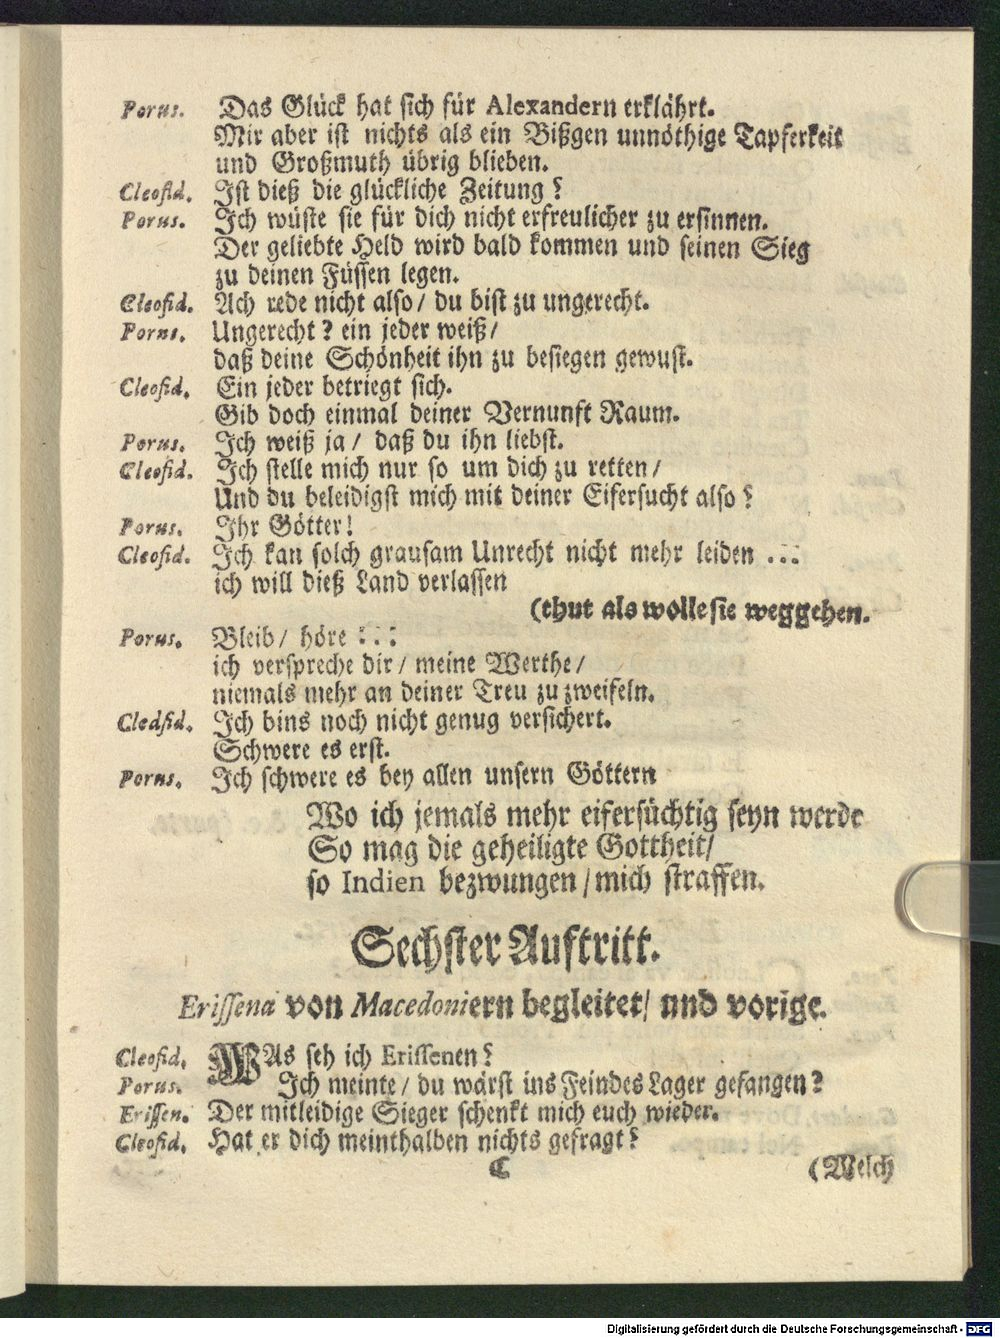 Porus. Das Glück hat sich für Alexandern erklährt.
Mir aber ist nichts als ein Bißgen unnöthige Tapferkeit
und Großmuth übrig blieben.
Cleofid. Ist dieß die glückliche Zeitung?
Porus. Ich wüste sie für dich nicht erfreulicher zu ersinnen.
Der geliebte Held wird bald kommen und seinen Sieg
zu deinen Füssen legen.
Cleofid. Ach rede nicht also/ du bist zu ungerecht.
Porus. Ungerecht? ein jeder weiß/
daß deine Schönheit ihn zu besiegen gewust.
Cleofid. Ein jeder betriegt sich.
Gib doch einmal deiner Vernunft Raum.
Porus. Ich weiß ja/ daß du ihn liebst.
Cleofid. Ich stelle mich nur so um dich zu retten/
Und du beleidigst mich mit deiner Eifersucht also?
Porus. Ihr Götter!
Cleofid. Ich kan solch grausam Unrecht nicht mehr leiden ...
ich will dieß Land verlassen
(thut als wolle sie weggehen.
Porus. Bleib/ höre :::
ich verspreche dir/ meine Werthe/
niemals mehr an deiner Treu zu zweifeln.
Cleofid. Ich bins noch nicht genug versichert.
Schwere es erst.
Porus. Ich schwere es bey allen unsern Göttern
Wo ich jemals mehr eifersüchtig seyn werde
So mag die geheiligte Gottheit/
so Indien bezwungen/ mich straffen.
Sechster Auftritt.
Erissena von Macedoniern begleitet/ und vorige.
Cleofid. WAs seh ich Erissenen?
Porus. Ich meinte/ du wärst ins Feindes Lager gefangen?
Erissen. Der mitleidige Sieger schenkt mich euch wieder.
Cleofid. Hat er dich meinthalben nichts gefragt?
C (Welch
Digitalisierung gefördert durch die Deutsche Forschungsgemeinschaft - DFG